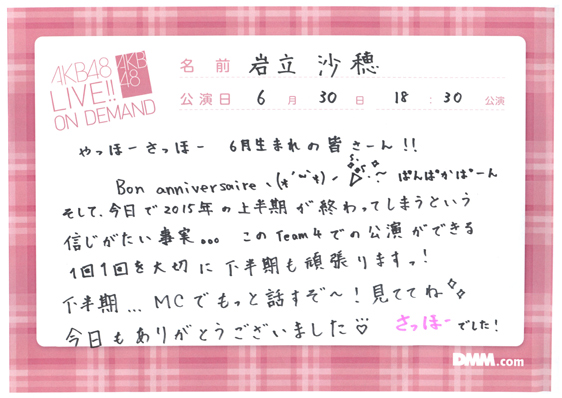 AKB48
LIVE!!
ON DEMAND
AKB
48
名前 岩立 沙穂
公演日 6月30日 18:30公演
やっほーさっほー 6月生まれの皆さーん!!
Bon anniversaire ヽ(*´ω`*)ノ ぱんぱかぱーん
そして、今日で2015年の上半期が終わってしまうという
信じがたい事実... このTeam4での公演ができる
1回1回を大切に下半期も頑張りますっ!
下半期...MCでもっと話すぞ〜!見ててね
今日もありがとうございました♡ さっほーでした!
DMM.com